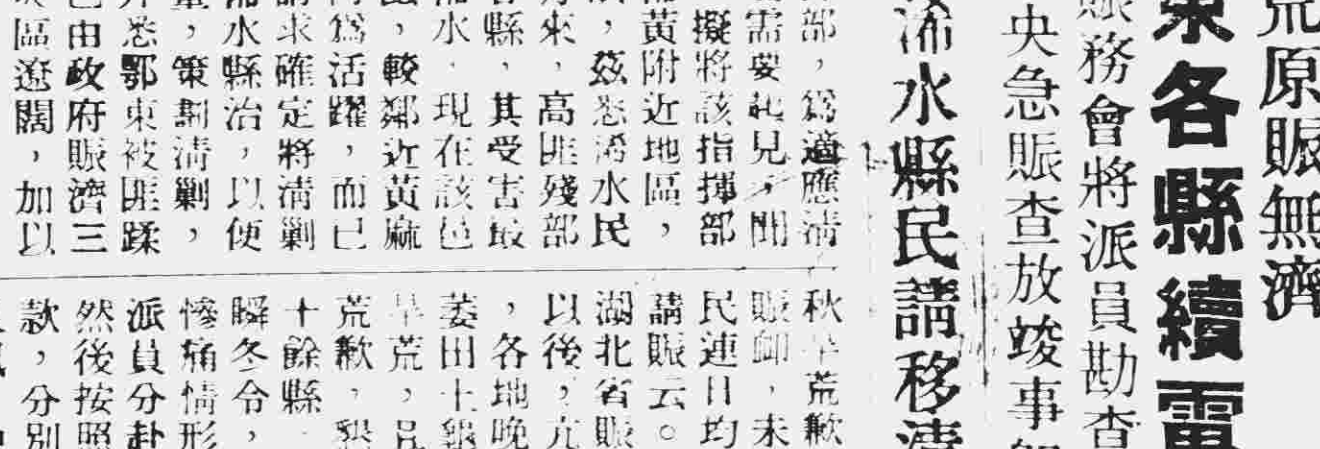 荒原賑無濟
東各縣續電
賑務會將派員勘查
央急賑查放竣事
浠水縣民請移
部，爲適應清
需要起見，聞
擬將該指揮部
黃附近地區，
，茲悉浠水民
來，高匪殘部
縣，其受害最
水，現在該邑
，較鄰近黃麻
爲活躍，而已
求確定將清剿
水縣治，以便
，策劃清剿，
悉鄂東被匪蹂
由政府賑濟三
區遼闊，加以
秋旱荒歉
賑卹，未
民連日均
請賑云。
湖北省賑
以後，亢
，各地晚
萎田土
旱荒，
荒歉，懇
十餘縣
瞬冬令，
慘痛情形
派員分赴
然後按照
款，分別